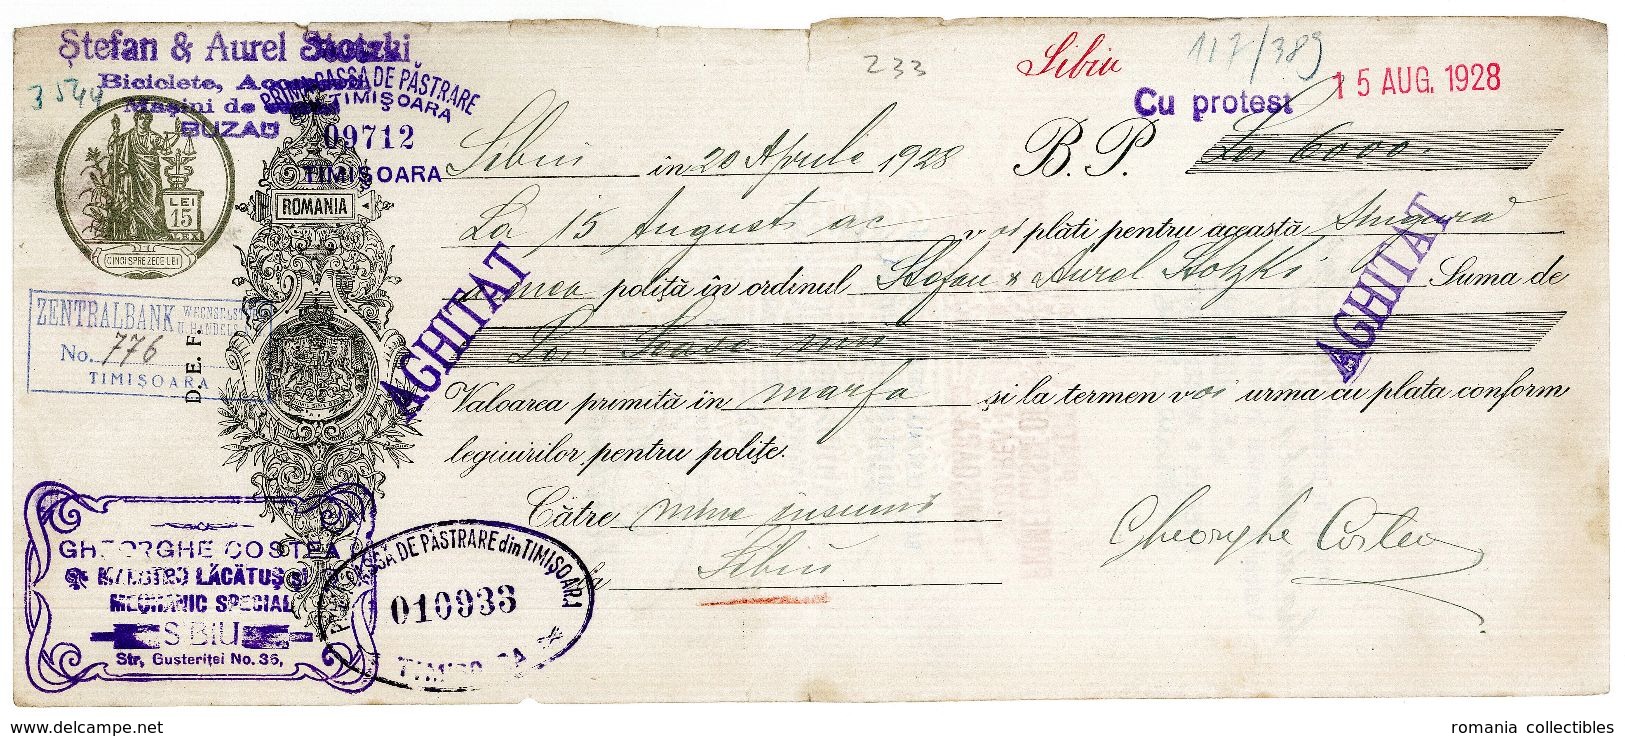 Ștefan & Aurel Stotzki
Biciclete, Accesorii
Mașini de
BUZAU
3544
PRIMA CASSA DE PĂSTRARE
TIMIȘOARA
09712
TIMIȘOARA
233
Sibiu
117/389
Cu protest
15 AUG. 1928
Sibiu în 20 Aprile 1928 B. P. Lei 6000.-
LEI
15
CINCISPREZECE LEI
ROMANIA
La 15 August ac v oi plăti pentru această Singura
a mea poliță în ordinul Stefan & Aurel Stotzki Suma de
Lei Sease mii
AGHITAT
AGHITAT
ZENTRALBANK
No. 776
TIMIȘOARA
D. E. F
Valoarea primită în marfa și la termen voi urma cu plata conform
legiuirilor pentru polițe.
Către mine insumi
Sibiu
Gheorghe Costea
GHEORGHE COSTEA
MAESTRO LĂCĂTUȘ ȘI
MECHANIC SPECIAL
SIBIU
Str, Gusteriței No. 36,
CASSĂ DE PĂSTRARE din TIMIȘOARA
010933
TIMIȘOARA
www.delcampe.net
romania collectibles